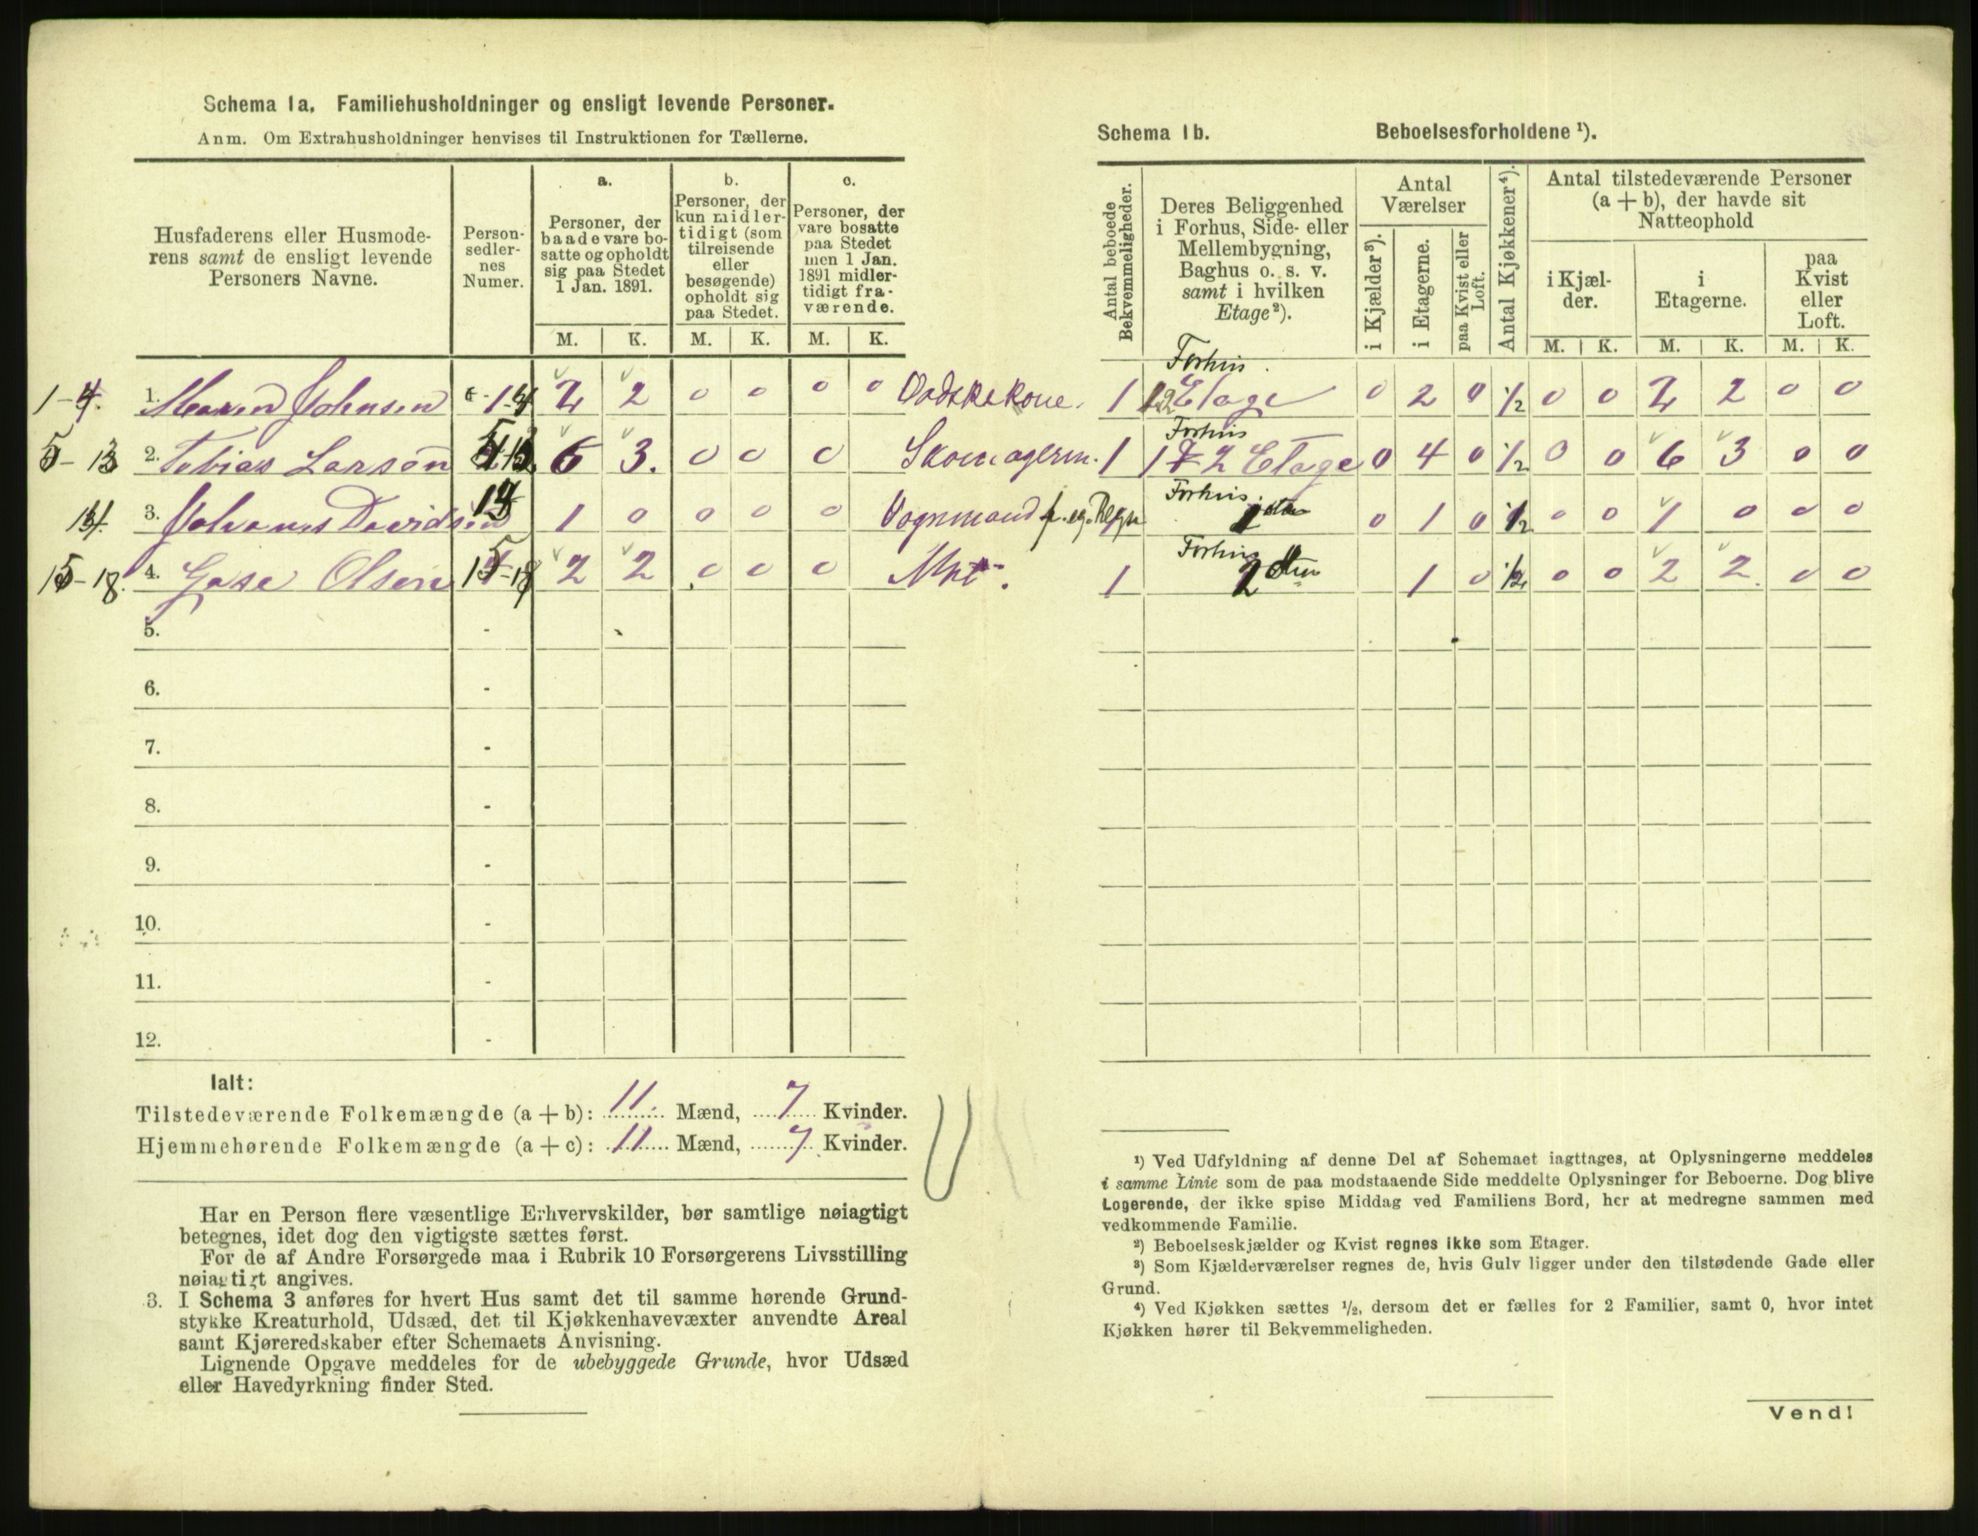 Schema 1a. Familiehusholdninger og ensligt levende Personer.
Anm. Om Extrahusholdninger henvises til Instruktionen for Tællerne.
Husfaderens eller Husmode-
rens samt de ensligt levende
Personers Navne.
Person-
sedler-
nes
Numer.
a.
Personer, der
baade vare bo-
satte og opholdt
sig paa Stedet
1 Jan. 1891.
b.
Personer, der
kun midler-
tidigt (som
tilreisende
eller
besøgende)
opholdt sig
paa Stedet.
c.
Personer, der
vare bosatte
paa Stedet
men 1 Jan.
1891 midler-
tidigt fra-
værende.
M. K. M. K. M. K.
1-4. 1. Maren Johnsen 1-4 2 2 0 0 0 0 Vadskekone.
5-13 2. Tobias Larsen 5-13 6 3. 0 0 0 Skomagerm.
14. 3. Johannes Davidsen 14 1 0 0 0 0 0 Vognmand f. eg. Regn
15-18. 4. Gase Olsen 15-18 2 2 0 0 0
5.
6.
7.
8.
9.
10.
11.
12.
Ialt:
Tilstedeværende Folkemængde (a + b): 11. Mænd, 7 Kvinder.
Hjemmehørende Folkemængde (a + c): 11 Mænd, 7 Kvinder.
Har en Person flere væsentlige Erhvervskilder, bør samtlige nøiagtigt
betegnes, idet dog den vigtigste sættes først.
For de af Andre Forsørgede maa i Rubrik 10 Forsørgerens Livsstilling
nøiagtigt angives.
3. I Schema 3 anføres for hvert Hus samt det til samme hørende Grund-
stykke Kreaturhold, Udsæd, det til Kjøkkenhavevæxter anvendte Areal
samt Kjøreredskaber efter Schemaets Anvisning.
Lignende Opgave meddeles for de ubebyggede Grunde, hvor Udsæd
eller Havedyrkning finder Sted.
Schema 1b. Beboelsesforholdene ¹).
Antal beboede
Bekvemmeligheder.
Deres Beliggenhed
i Forhus, Side- eller
Mellembygning,
Baghus o. s. v.
samt i hvilken
Etage²).
Antal
Værelser
i Kjælder³).
i Etagerne.
paa Kvist eller
Loft.
Antal Kjøkkener⁴).
Antal tilstedeværende Personer
(a + b), der havde sit
Natteophold
i Kjæl-
der.
i
Etagerne.
paa
Kvist
eller
Loft.
M. K. M. K. M. K.
Forhus.
1 Etage 0 2 0 ½ 0 0 2 2 0 0
Forhus
1 2 Etage 0 4 0 ½ 0 0 6 3 0 0
Forhus.
1 0 1 0 ½ 0 0 1 0 0 0
Forhus
1 2 1 0 ½ 0 0 2 2 0 0
¹) Ved Udfyldning af denne Del af Schemaet iagttages, at Oplysningerne meddeles
i samme Linie som de paa modstaaende Side meddelte Oplysninger for Beboerne. Dog blive
Logerende, der ikke spise Middag ved Familiens Bord, her at medregne sammen med
vedkommende Familie.
²) Beboelseskjælder og Kvist regnes ikke som Etager.
³) Som Kjælderværelser regnes de, hvis Gulv ligger under den tilstødende Gade eller
Grund.
⁴) Ved Kjøkken sættes ½, dersom det er fælles for 2 Familier, samt 0, hvor intet
Kjøkken hører til Bekvemmeligheden.
Vend!